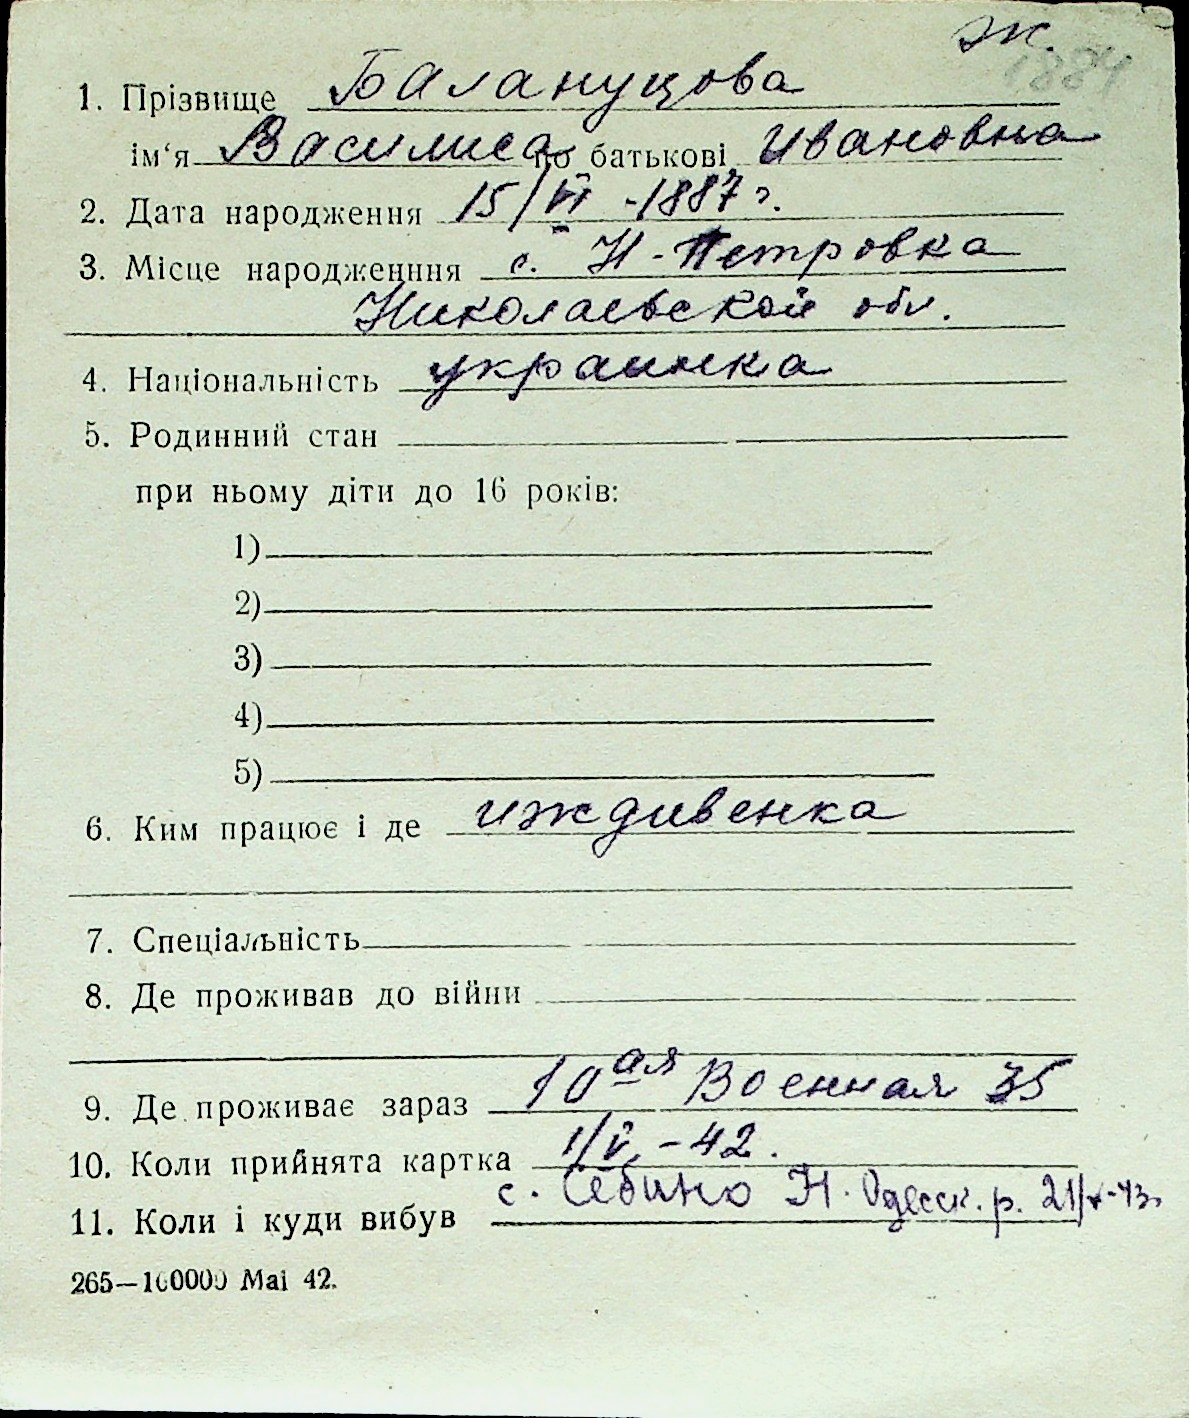 ж.
1884
1. Прізвище Балануцова
ім‘я Василиса по батькові Ивановна
2. Дата народження 15/VI -1887 г.
3. Місце народженння с. Н-Петровка
Николаевской обл.
4. Національність украинка
5. Родинний стан
при ньому діти до 16 років:
1)
2)
3)
4)
5)
6. Ким працює і де иждивенка
7. Спеціальність
8. Де проживав до війни
9. Де проживає зараз 10ая Военная 35
10. Коли прийнята картка 1/V -42.
11. Коли і куди вибув с. Себино Н. Одесск. р. 21/V-43г
265—100000 Mai 42.